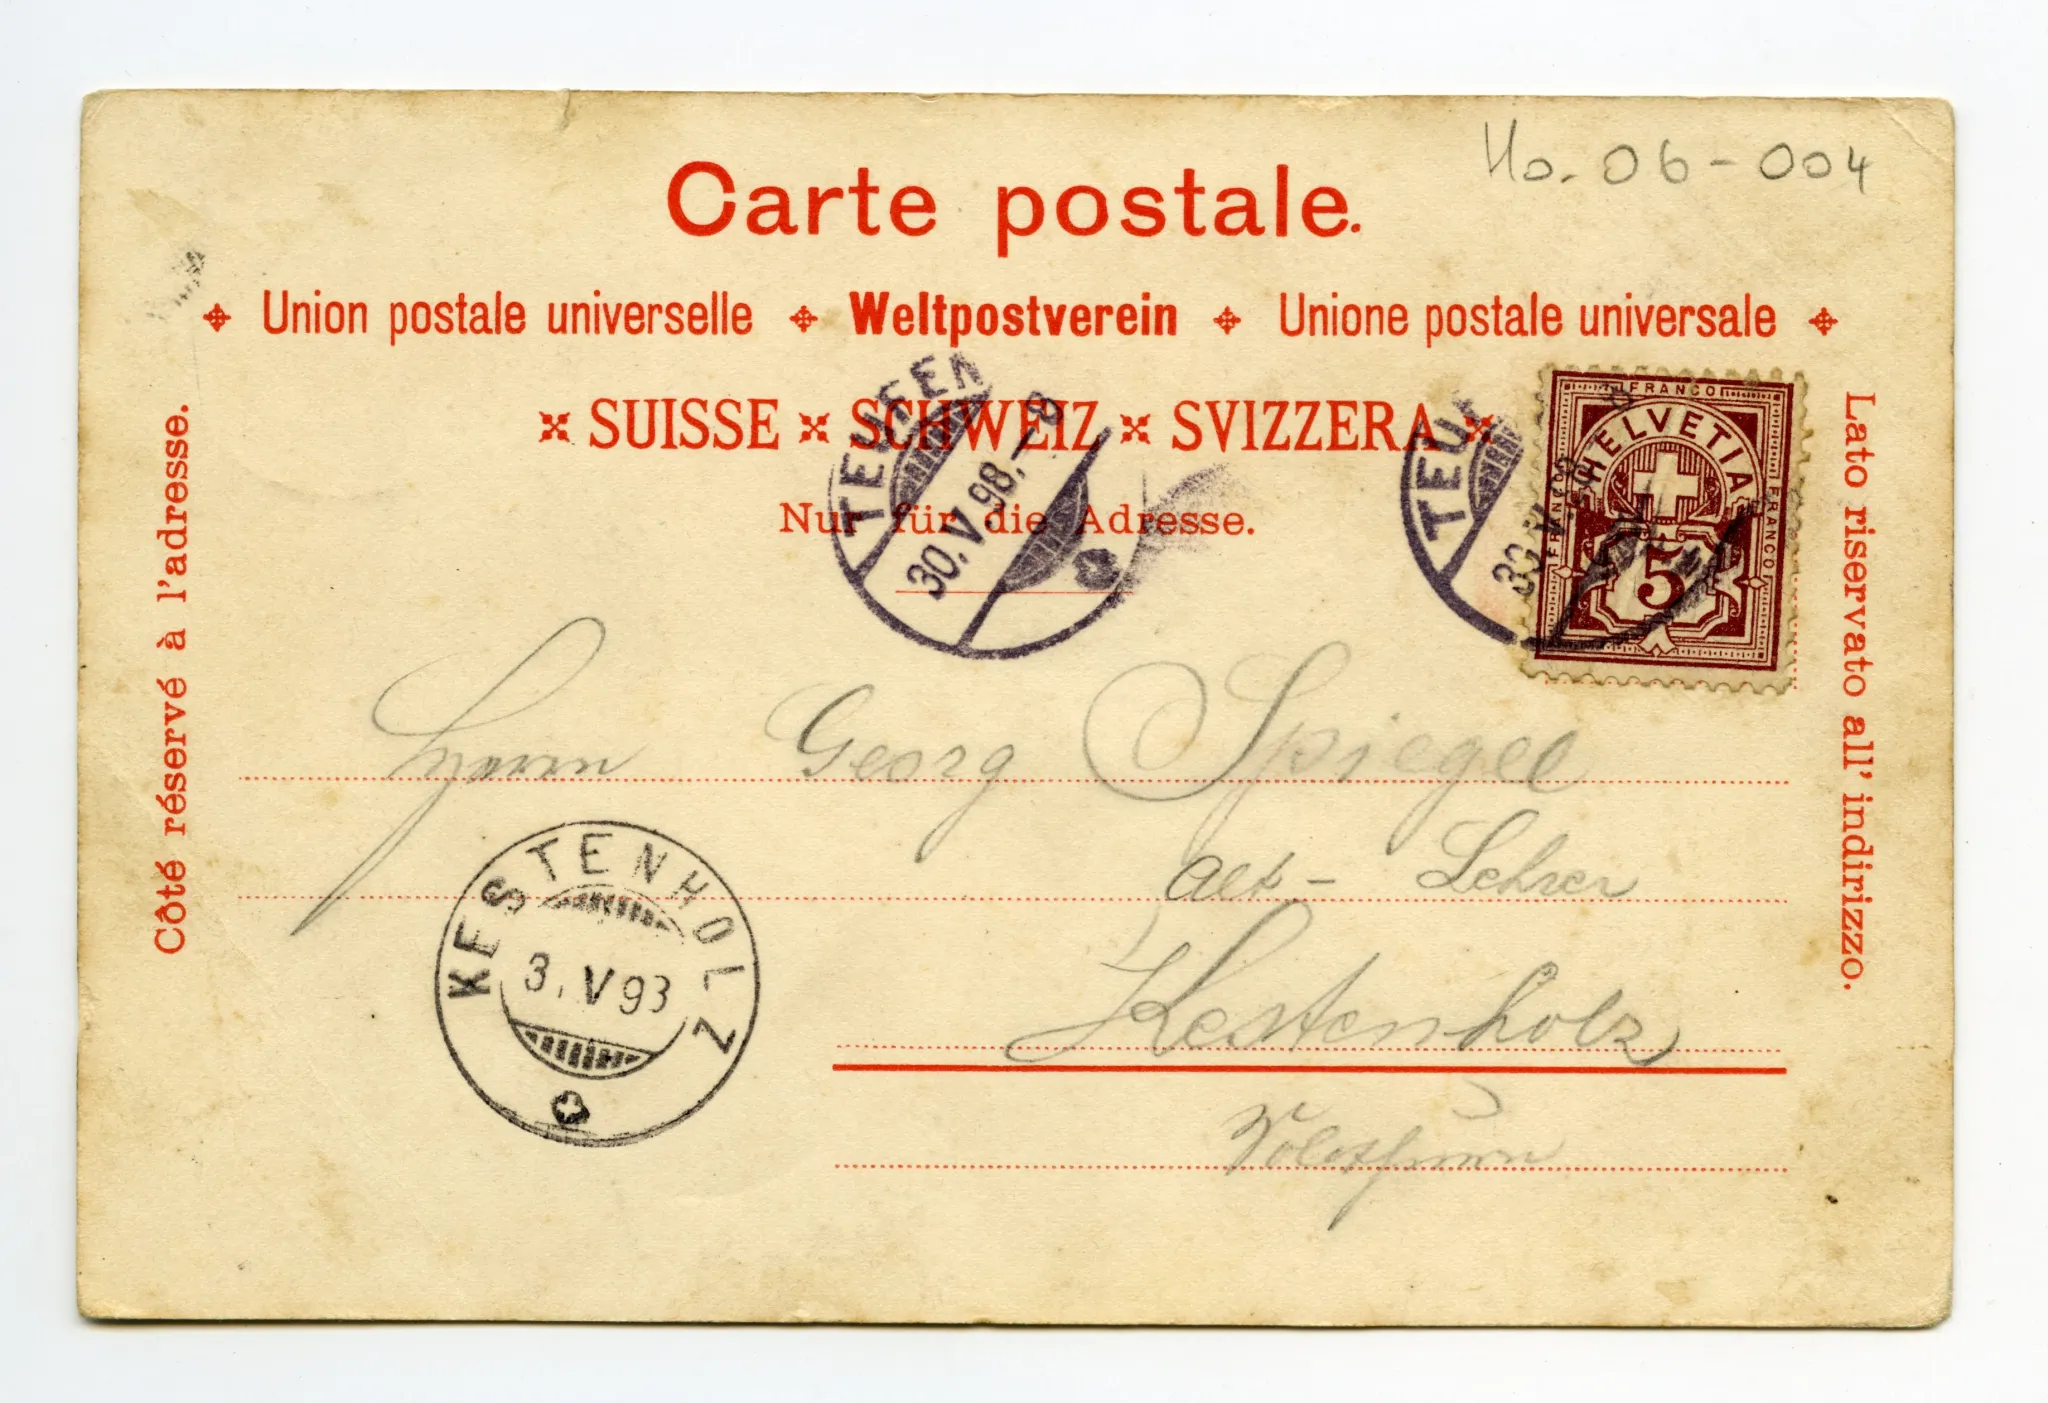 Ho. 06-004
Carte postale.
Union postale universelle Weltpostverein Unione postale universale
SUISSE SCHWEIZ SVIZZERA
Nur für die Adresse.
Côté réservé à l'adresse.
Lato riservato all' indirizzo.
TEUFEN
30.V.98.-8
TEUF
30.V.98.-8
FRANCO
FRANCO
FRANCO
HELVETIA
5
Herrn Georg Spiegel
alt-Lehrer
Kestenholz
Solothurn
KESTENHOLZ
3.V93